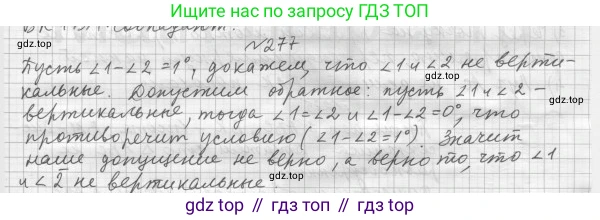 Ищите нас по запросу ГДЗ ТОП
№277
Пусть ∠1-∠2=1°, докажем, что ∠1 и ∠2 не верти-
кальные. Допустим обратное: пусть ∠1 и ∠2 -
вертикальные, тогда ∠1=∠2 и ∠1-∠2=0°, что
противоречит условию (∠1-∠2=1°). Значит
наше допущение не верно, а верно то, что ∠1
и ∠2 не вертикальные.
gdz.top
gdz.top
gdz.top
gdz.top
gdz.top
gdz.top
© gdz.top // gdz.top // gdz.top